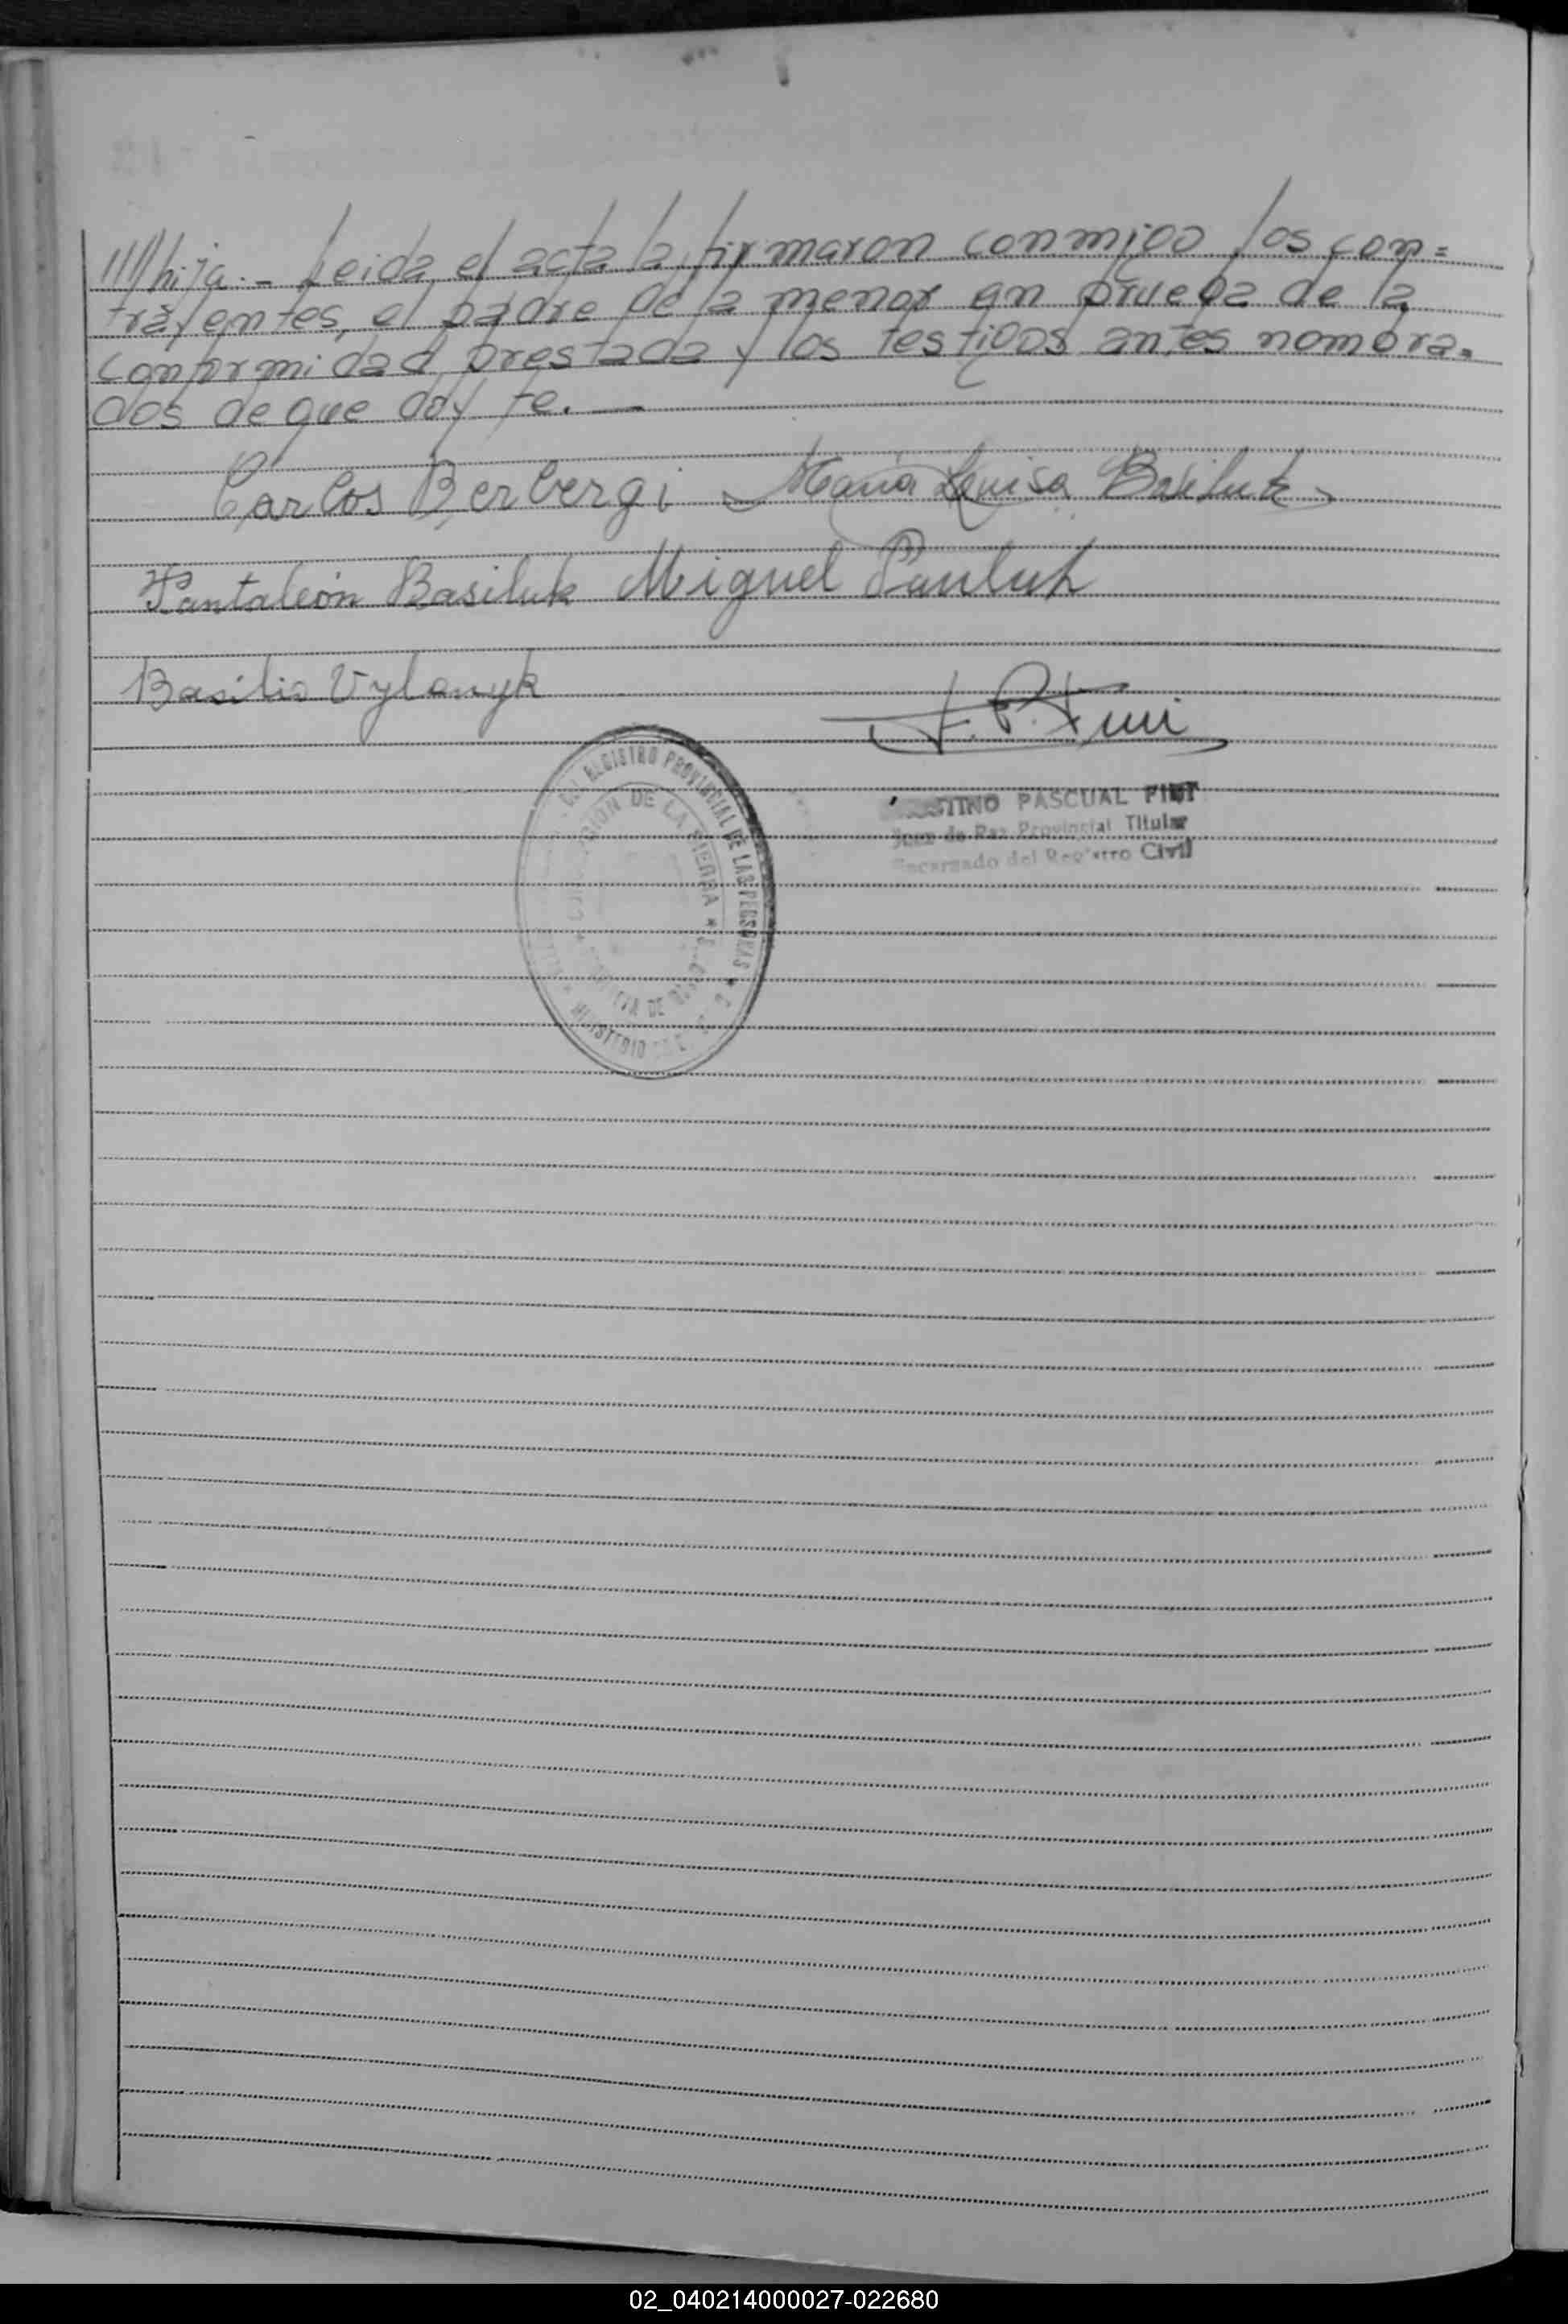 ////hija.- Leida el acta la firmaron conmigo los con=
trayentes, el padre de la menor en prueba de la
conformidad prestada y los testigos antes nombra=
dos de que doy fe.—
Carlos Berbergi María Luisa Basiluk
Pantaleón Basiluk Miguel Pauluk
Basilio Vylanyk
REGISTRO PROVINCIAL DE LAS PERSONAS
DE LA SIERRA
PASCUAL
Juez de Paz Provincial Titular
Encargado del Registro Civil
02_040214000027-022680